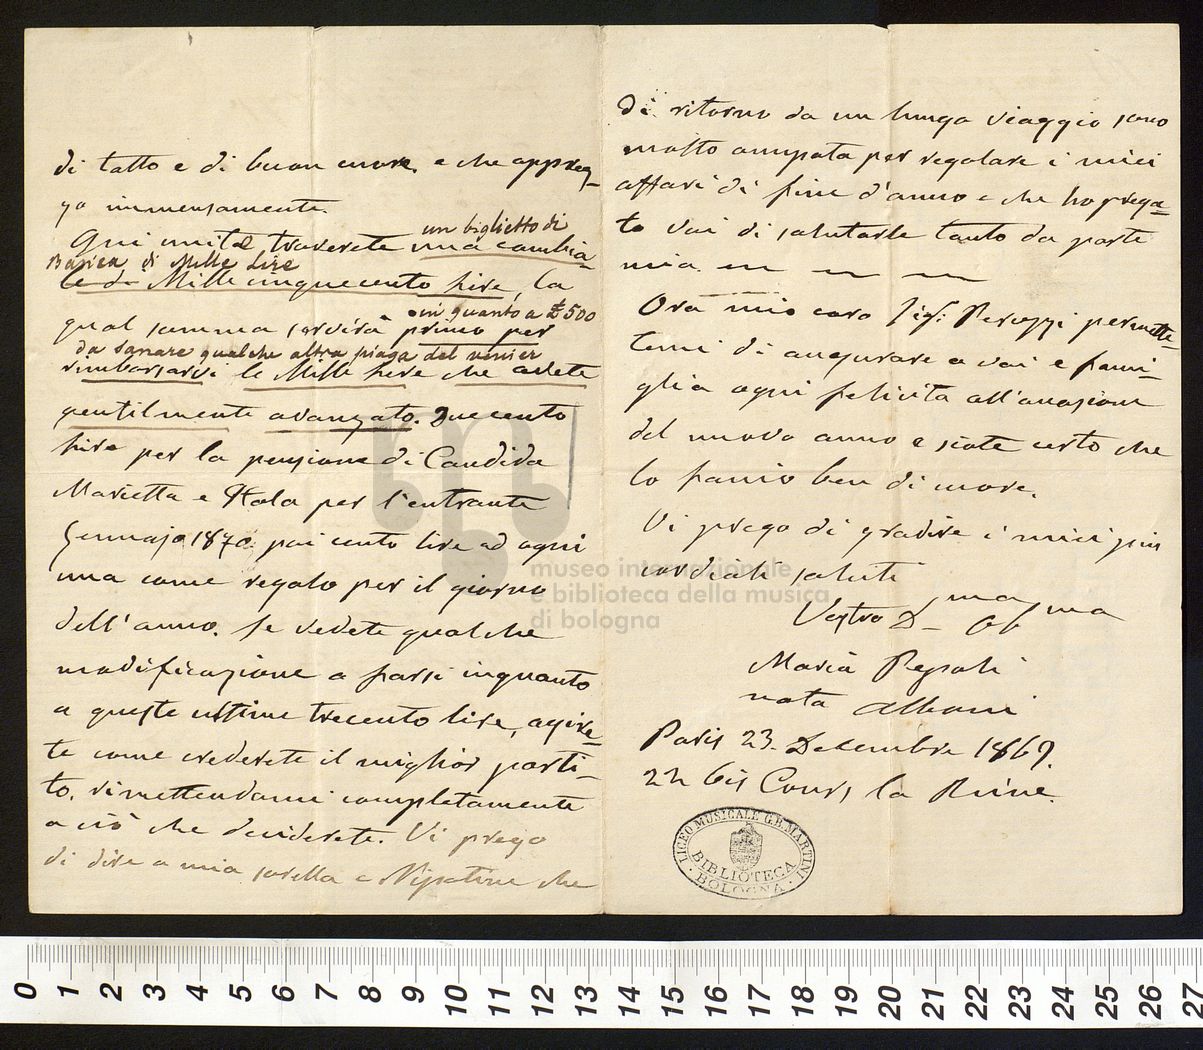 di tatto e di buon cuore. e che apprez-
zo immensamente.
un biglietto di
Qui unita troverete una cambia-
Banca di Mille Lire
le di Mille cinquecento lire, la
in quanto a £500
qual somma servirà primo per
da sanare qualche altra piaga del
rimborsarvi le Mille lire che avete
gentilmente avanzato. Due cento
lire per la pensione di Candida
Marietta e Itala per l'entrante
Gennajo 1870. poi cento lire ad ogni
una come regalo per il giorno
dell'anno. Se vedete qualche
modificazione a farsi inquanto
a queste ultime trecento lire, agire-
te come crederete il miglior parti-
to, rimettendomi completamente
a ciò che deciderete. Vi prego
di dire a mia sorella e Nipotine che
di ritorno da un lungo viaggio sono
molto occupata per regolare i miei
affari di fine d'anno e che ho prega-
to voi di salutarle tanto da parte
mia.
Ora mio caro Sig: Peruzzi permette-
temi di augurare a voi e fami-
glia ogni felicità all'occasione
del nuovo anno e siate certo che
lo faccio ben di cuore.
Vi prego di gradire i miei più
cordiali saluti
Vostra D ma Ob ma
Maria Pepoli
nata Alboni
Paris 23. Decembre 1869.
22 bis Cours la Reine.
LICEO MUSICALE G.B. MARTINI
BIBLIOTECA
BOLOGNA
museo internazionale
e biblioteca della musica
di bologna
0 1 2 3 4 5 6 7 8 9 10 11 12 13 14 15 16 17 18 19 20 21 22 23 24 25 26 27